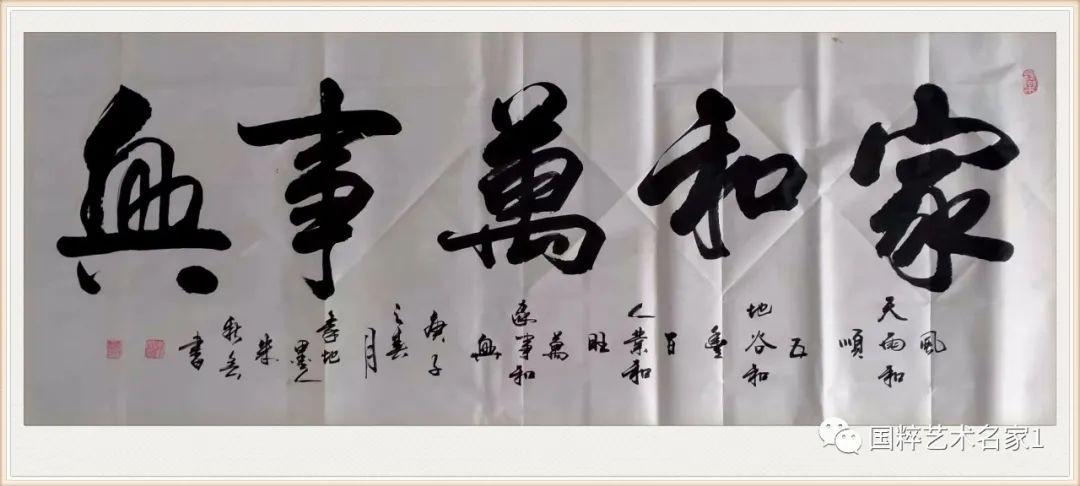 家和萬事興
風
天雨和
順
五
地谷和
豐
百
人業和
旺
萬
家事和
興
庚子
之春
月
孝地
墨人
朱
書
国粹艺术名家1